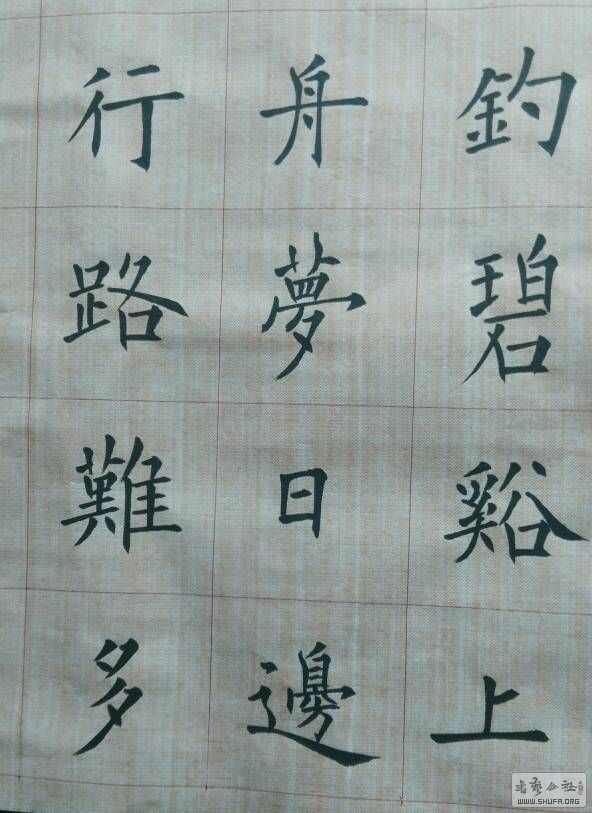 釣碧谿上
舟夢日邊
行路難多
WWW.SHUFA.ORG